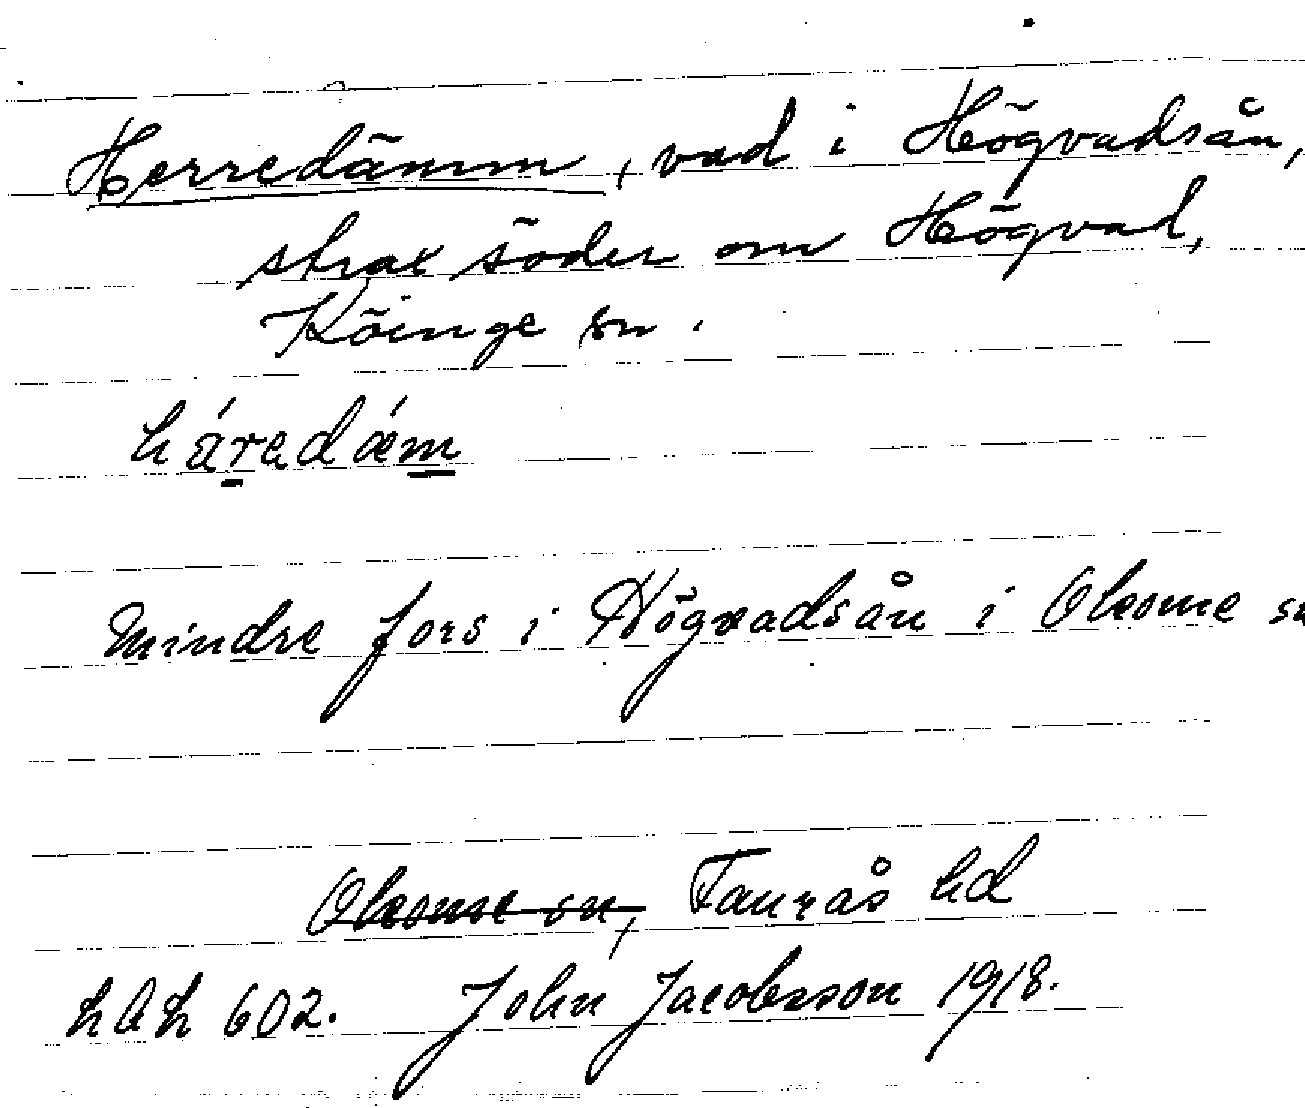 Herredämm, vad i Högvadsån,
strax söder om Högvad,
Köinge sn.
háredǽm
Mindre fors i Högvadsån i Okome sn
Okome sn, Faurås hd
LAL 602. John Jacobsson 1918.